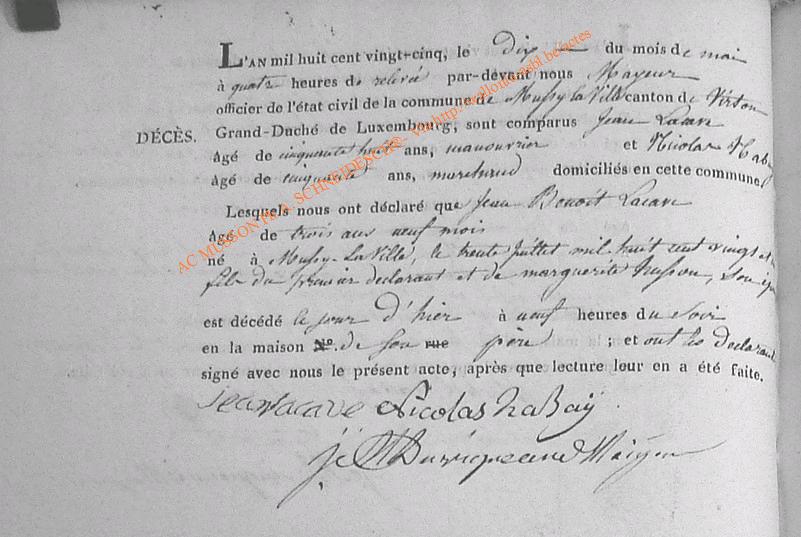 L'AN mil huit cent vingt-cinq, le dix du mois de mai
à quatre heures de relevée par-devant nous Mayeur
officier de l'état civil de la commune de Mussy la Ville canton de Virton
DÉCÈS. Grand-Duché de Luxembourg, sont comparus Jean Lacave
âgé de cinquante huit ans, manouvrier et Nicolas Habay
âgé de cinquante ans, marchand domiciliés en cette commune
Lesquels nous ont déclaré que Jean Benoît Lacave
âgé de trois ans neuf mois
né à Mussy-La-Ville, le trente juillet mil huit cent vingt et un
fils du premier déclarant et de marguerite husson, son
est décédé le jour d'hier à neuf heures du soir
en la maison No. de son rue père ; et ont les déclarant
signé avec nous le présent acte, après que lecture leur en a été faite.
Jean lacave Nicolas habaÿ
Maÿeur
AC MUSSONTE A. SCHNEIDESCH® via http: